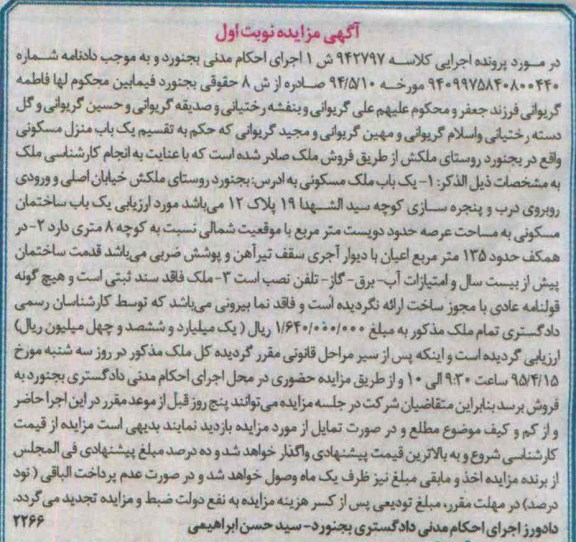 آگهی مزایده نوبت اول
در مورد پرونده اجرایی کلاسه ۹۴۲۷۹۷ ش ۱ اجرای احکام مدنی بجنورد و به موجب دادنامه شماره
۹۴۰۹۹۷۵۸۴۰۸۰۰۴۴۰ مورخه ۹۴/۵/۱۰ صادره از ش ۸ حقوقی بجنورد فیمابین محکوم لها فاطمه
گریوانی فرزند جعفر و محکوم علیهم علی گریوانی و بنفشه رختیانی و صدیقه گریوانی و حسین گریوانی و گل
دسته رختیانی واسلام گریوانی و مهین گریوانی و مجید گریوانی که حکم به تقسیم یک باب منزل مسکونی
واقع در بجنورد روستای ملکش از طریق فروش ملک صادر شده است که با عنایت به انجام کارشناسی ملک
به مشخصات ذیل الذکر: ۱- یک باب ملک مسکونی به ادرس: بجنورد روستای ملکش خیابان اصلی و ورودی
روبروی درب و پنجره سازی کوچه سید الشهدا ۱۹ پلاک ۱۲ می‌باشد مورد ارزیابی یک باب ساختمان
مسکونی به مساحت عرصه حدود دویست متر مربع با موقعیت شمالی نسبت به کوچه ۸ متری دارد ۲- در
همکف حدود ۱۳۵ متر مربع اعیان با دیوار آجری سقف تیرآهن و پوشش ضربی می‌باشد قدمت ساختمان
پیش از بیست سال و امتیازات آب- برق- گاز- تلفن نصب است ۳- ملک فاقد سند ثبتی است و هیچ گونه
قولنامه عادی با مجوز ساخت ارائه نگردیده است و فاقد نما بیرونی می‌باشد که توسط کارشناسان رسمی
دادگستری تمام ملک مذکور به مبلغ ۱/۶۴۰/۰۰۰/۰۰۰ ریال ( یک میلیارد و ششصد و چهل میلیون ریال)
ارزیابی گردیده است و اینکه پس از سیر مراحل قانونی مقرر گردیده کل ملک مذکور در روز سه شنبه مورخ
۹۵/۴/۱۵ ساعت ۹:۳۰ الی ۱۰ و از طریق مزایده حضوری در محل اجرای احکام مدنی دادگستری بجنورد به
فروش برسد بنابراین متقاضیان شرکت در جلسه مزایده می‌توانند پنج روز قبل از موعد مقرر در این اجرا حاضر
و از کم و کیف موضوع مطلع و در صورت تمایل از مورد مزایده بازدید نمایند بدیهی است مزایده از قیمت
کارشناسی شروع و به بالاترین قیمت پیشنهادی واگذار خواهد شد و ده درصد مبلغ پیشنهادی فی المجلس
از برنده مزایده اخذ و مابقی مبلغ نیز ظرف یک ماه وصول خواهد شد و در صورت عدم پرداخت الباقی ( نود
درصد) در مهلت مقرر، مبلغ تودیعی پس از کسر هزینه مزایده به نفع دولت ضبط و مزایده تجدید می‌گردد.
دادورز اجرای احکام مدنی دادگستری بجنورد- سید حسن ابراهیمی ۲۲۶۶